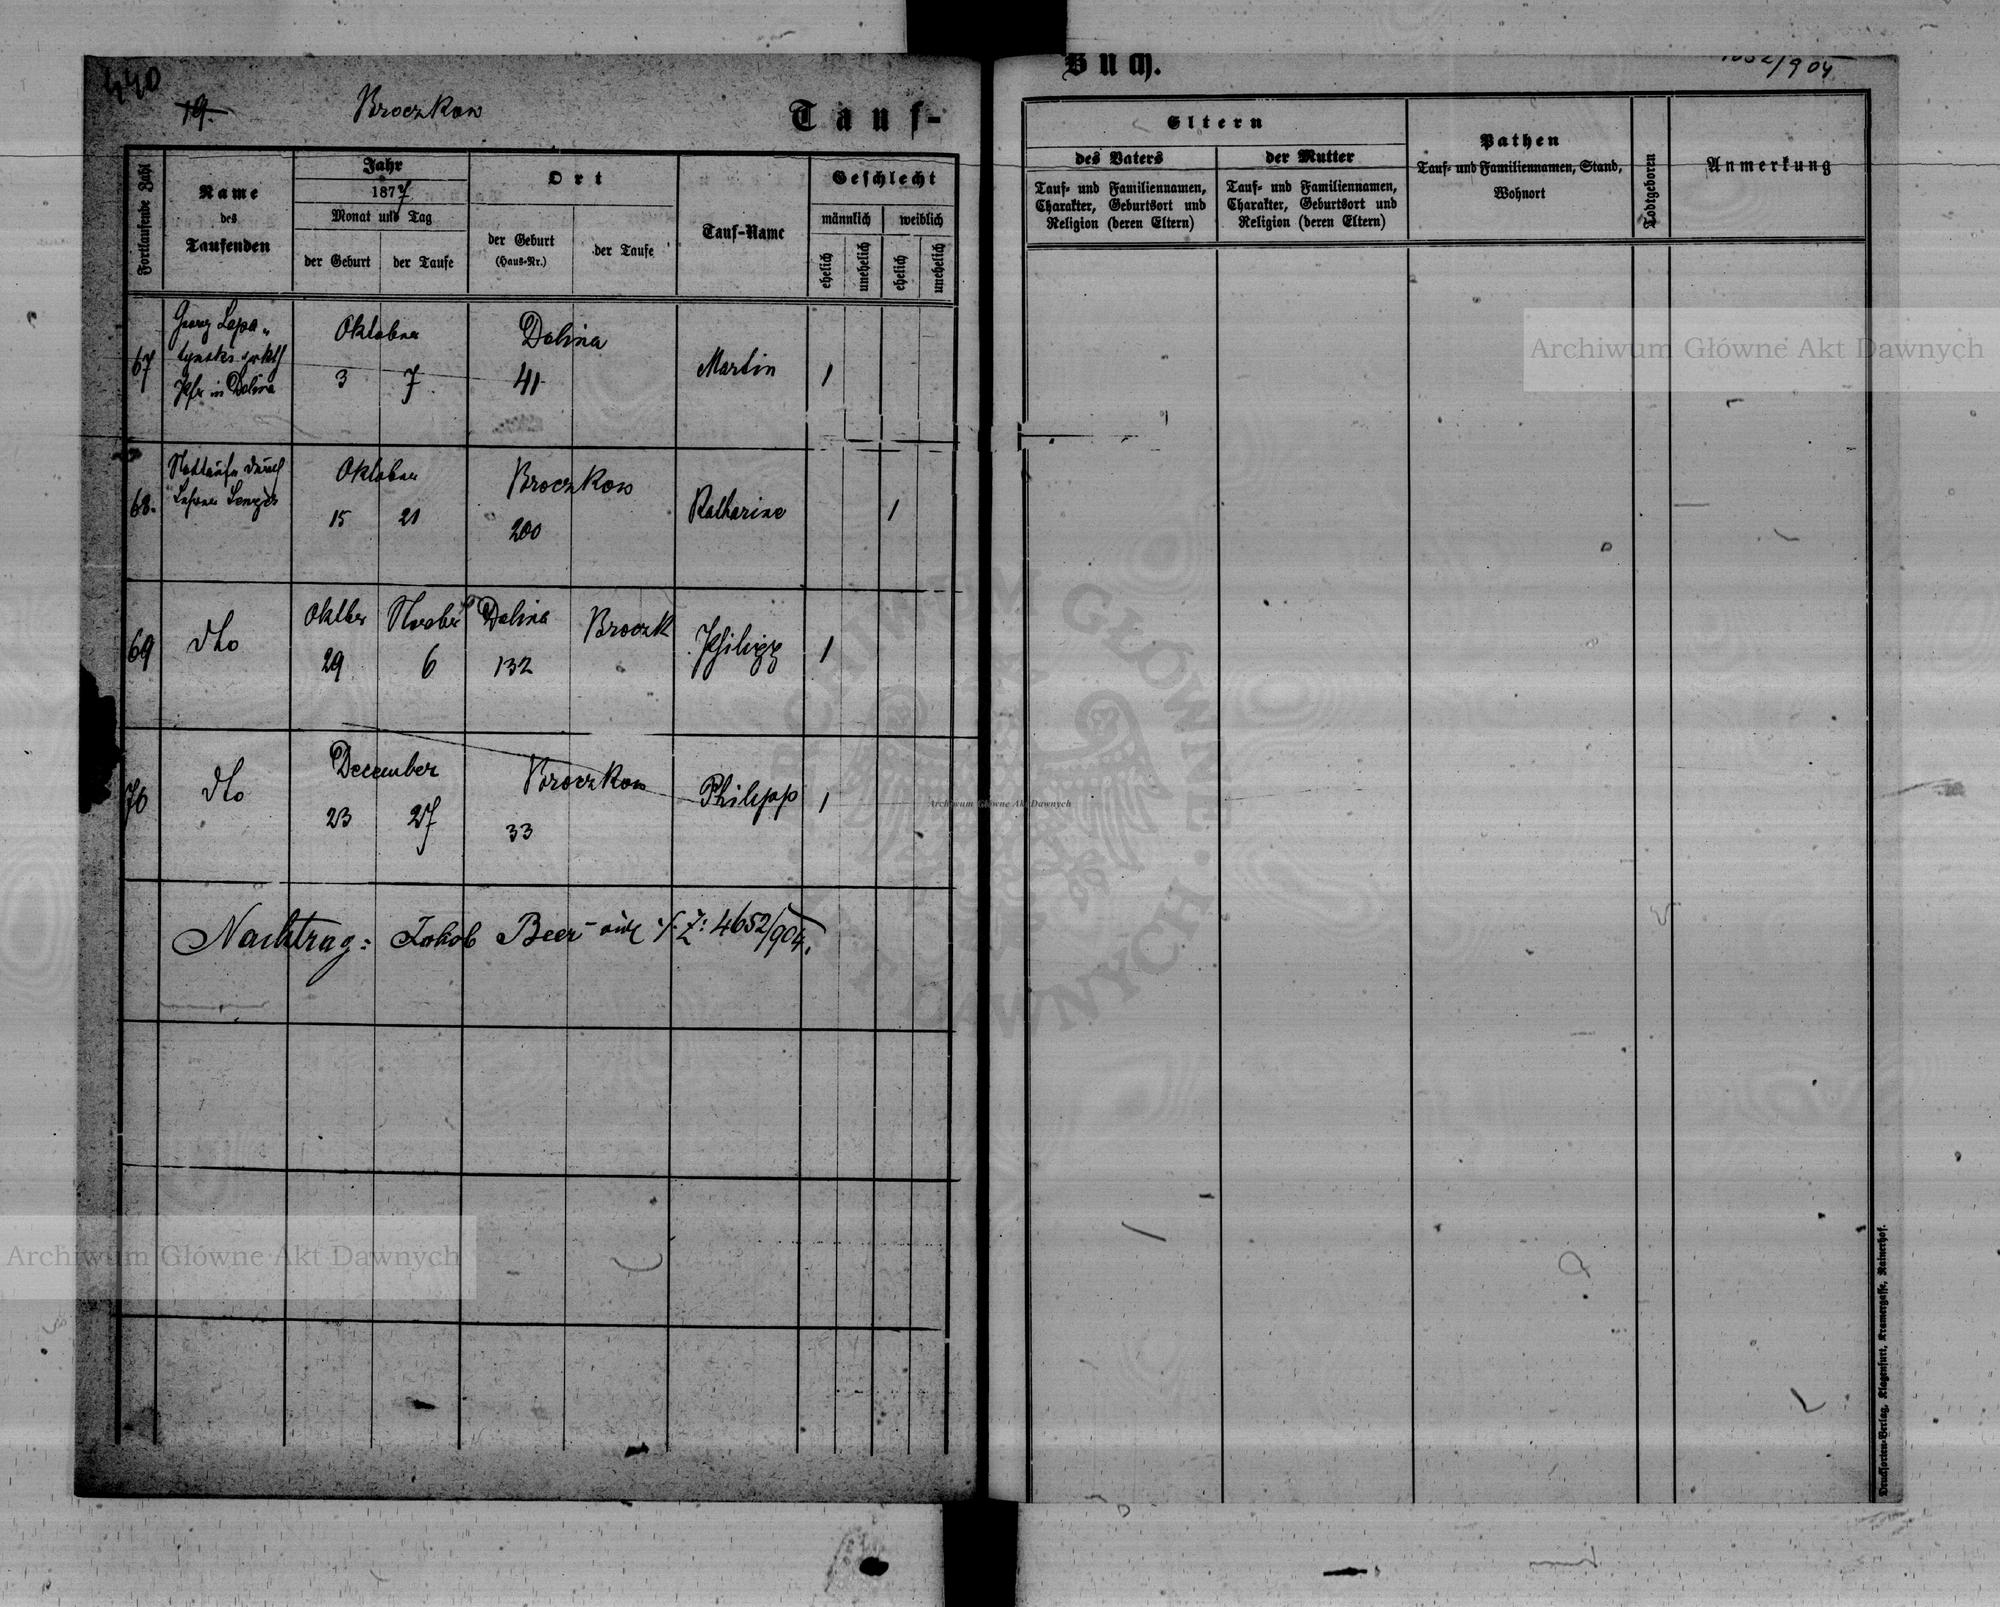 440
19.
Broczkow
Tauf-
Fortlaufende Zahl
Name
des
Taufenden
Jahr
1877
Monat und Tag
der Geburt
der Taufe
Ort
der Geburt
(Haus-Nr.)
der Taufe
Tauf-Name
Geschlecht
männlich
weiblich
ehelich
unehelich
ehelich
unehelich
67
Georg Lopa-
tynski grkth
Pfr in Dolina
Oktober
3 7.
Dolina
41
Martin
1
68.
Nottaufe durch
Lehrer
Oktober
15 21
Broczkow
200
Katharine
1
69
dto
Oktber
29
Novbr
6
Dolina
132
Broczk
Philipp
1
70
dto
December
23 27
Broczkow
33
Philipp
1
Nachtrag: Jakob Beer - Z: 4652/904.
Buch.
4652/904
Eltern
des Vaters
Tauf- und Familiennamen,
Charakter, Geburtsort und
Religion (deren Eltern)
der Mutter
Tauf- und Familiennamen,
Charakter, Geburtsort und
Religion (deren Eltern)
Pathen
Tauf- und Familiennamen, Stand,
Wohnort
Todtgeboren
Anmerkung
Drucksorten-Verlag, Klagenfurt, Kramergasse, Rainerhof.
Archiwum Główne Akt Dawnych
Archiwum Główne Akt Dawnych
Archiwum Główne Akt Dawnych
ARCHIWUM GŁÓWNE · AKT DAWNYCH ·